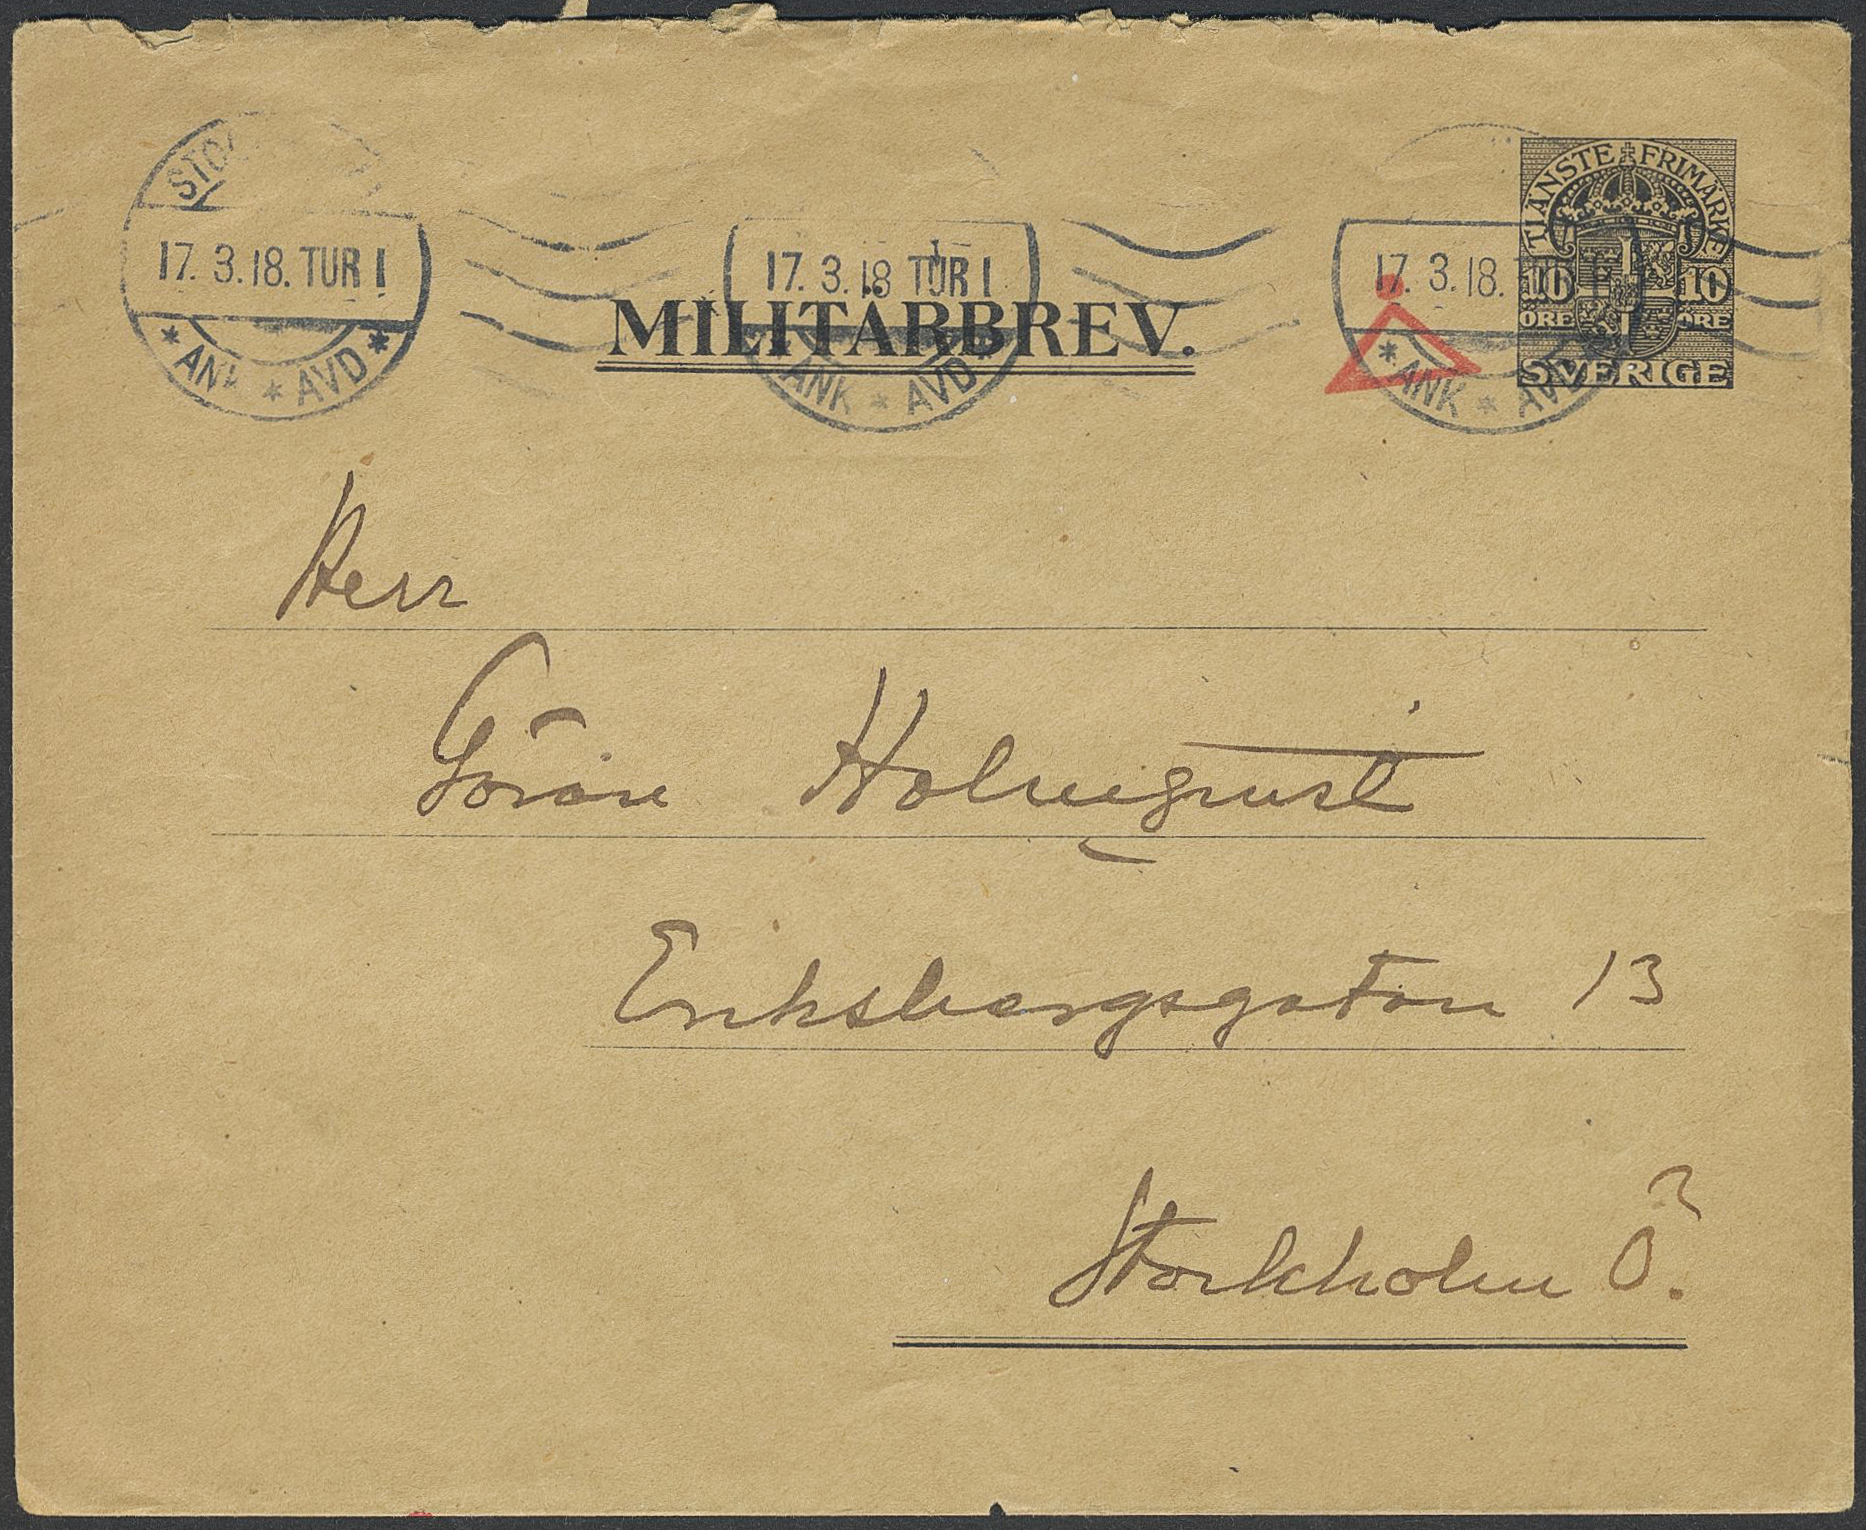 TJÄNSTE FRIMÄRKE
17. 3. 18. TUR 1
17. 3. 18 TUR 1
17. 3. 18.
10 10
ÖRE ÖRE
MILITÄRBREV.
* ANK * AVD *
ANK * AVD
* ANK * AVD
SVERIGE
Herr
Göran Holmquist
Eriksbergsgatan 13
Stockholm Ö.